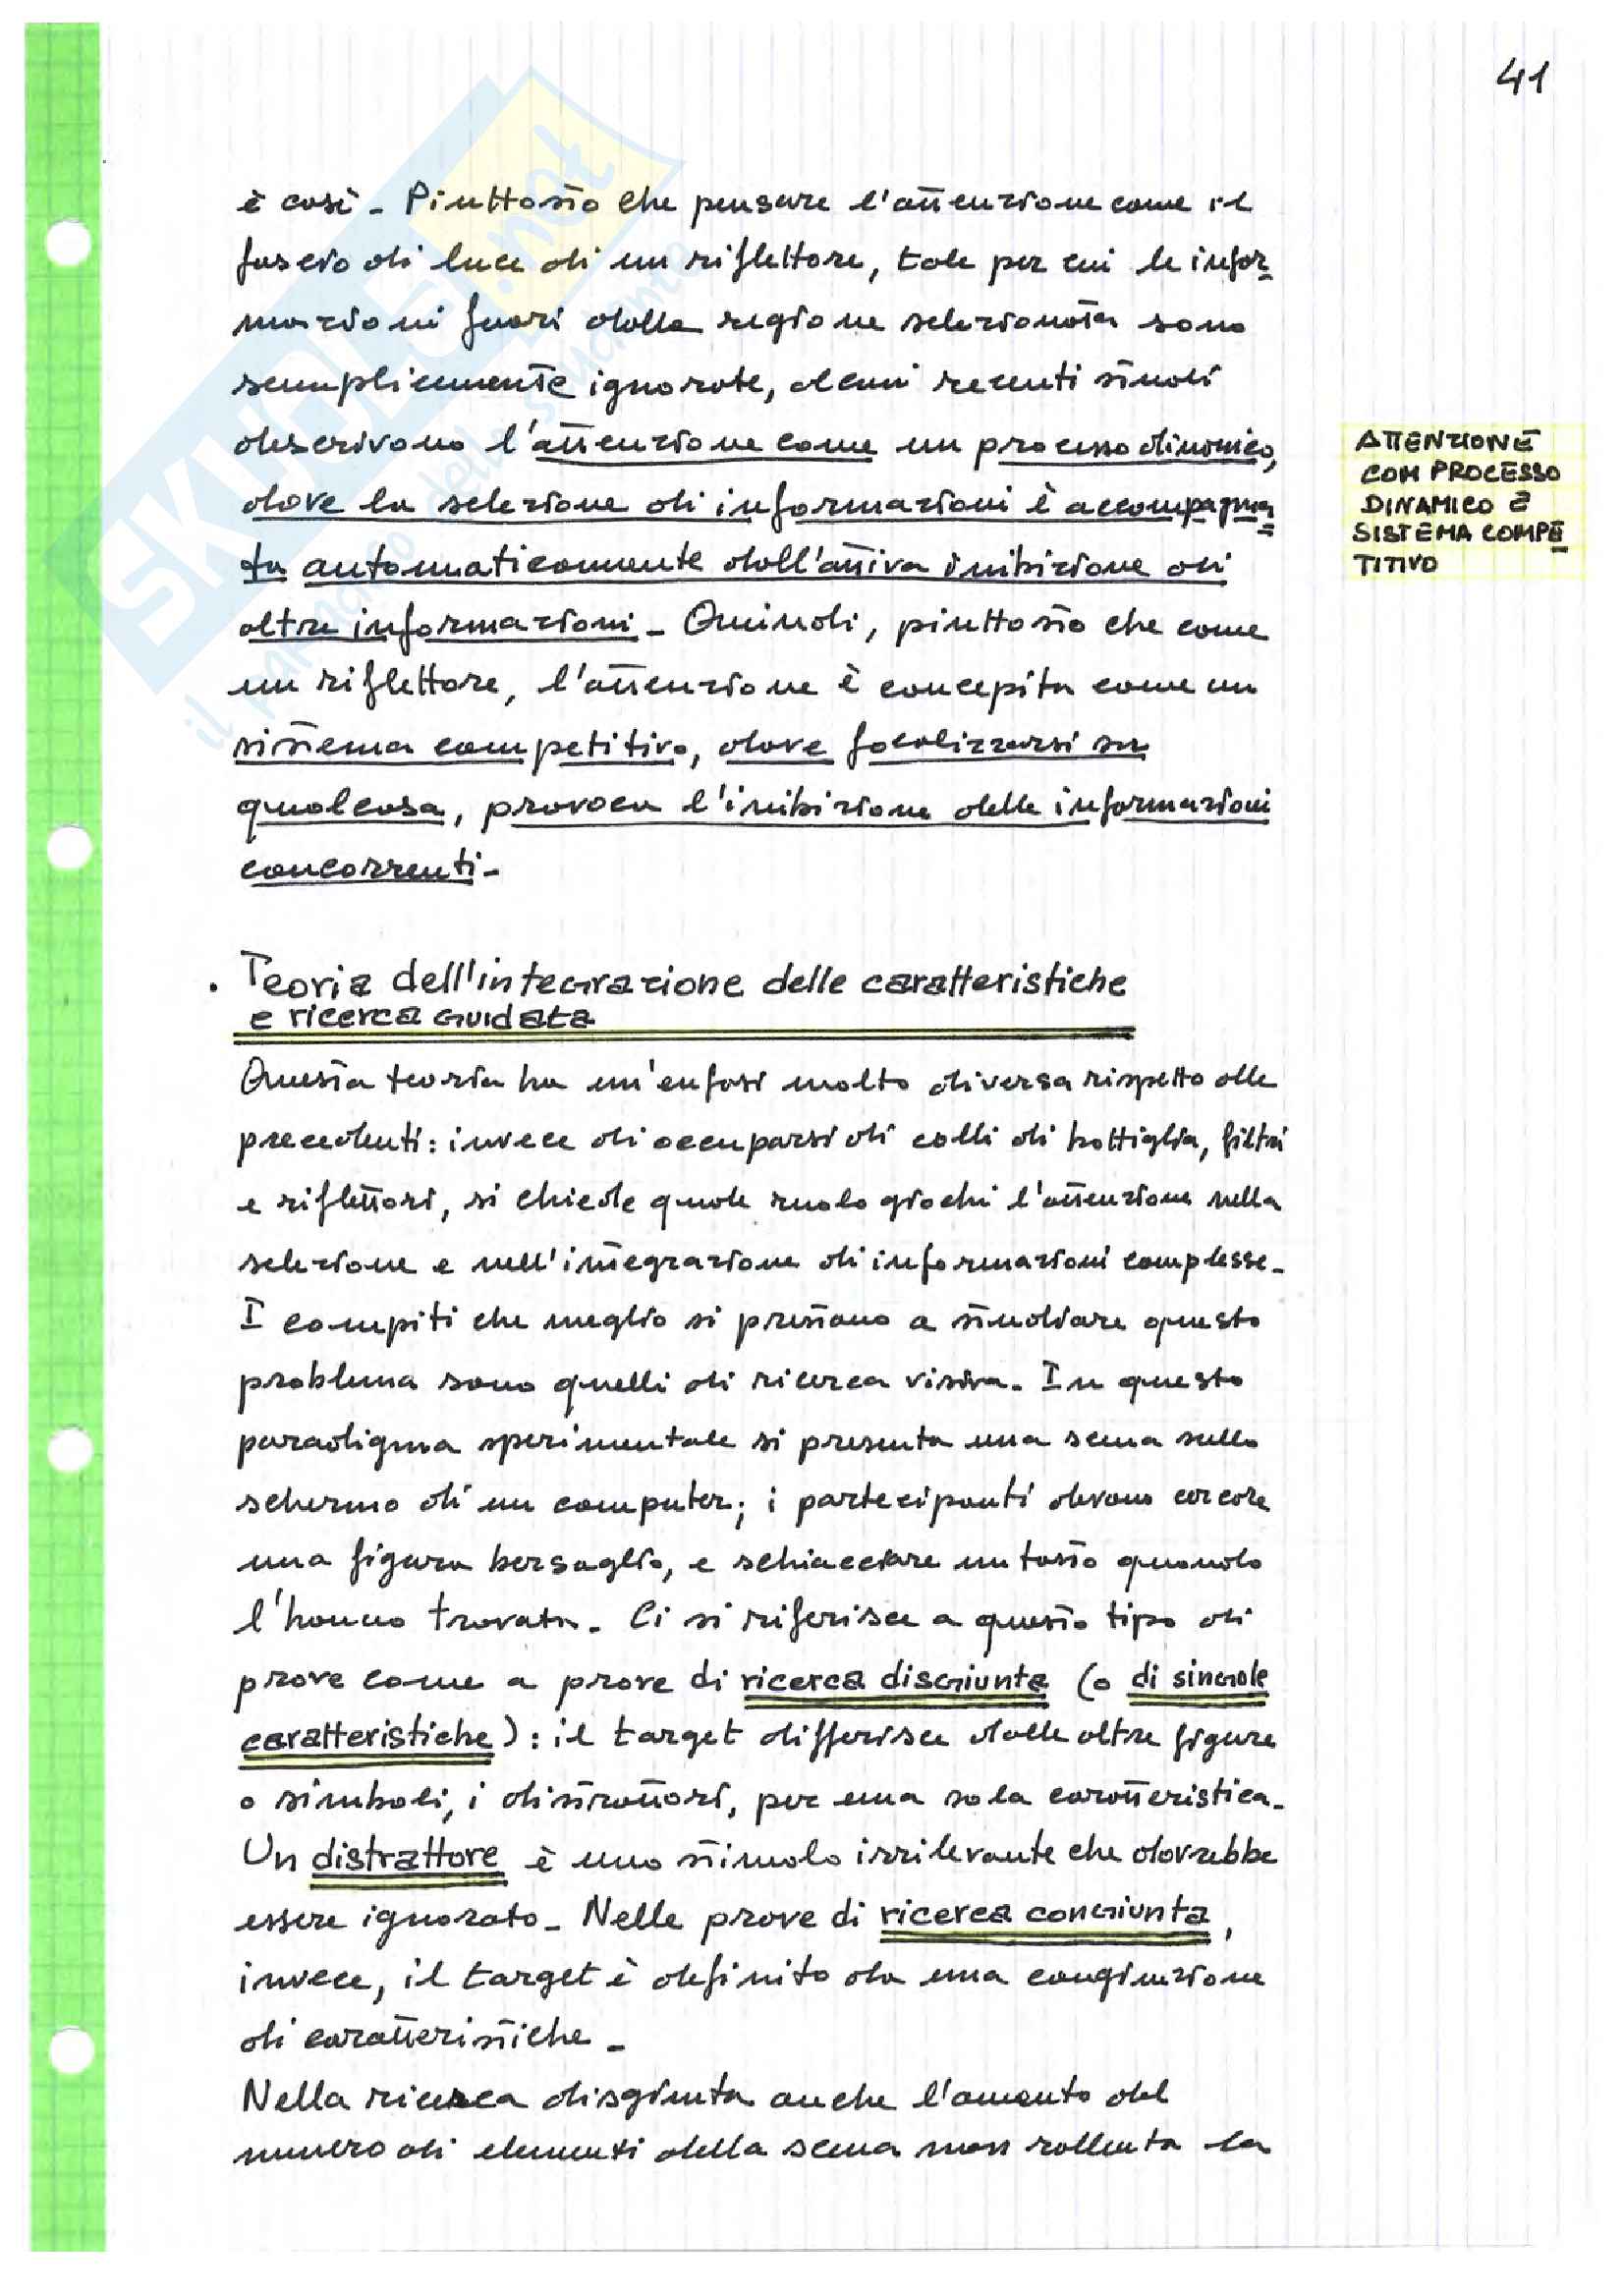 41
è così - Piuttosto che pensare l'attenzione come il
fascio di luce di un riflettore, tale per cui le infor-
mazioni fuori dalla regione selezionata sono
semplicemente ignorate, alcuni recenti studi
descrivono l'attenzione come un processo dinamico,
dove la selezione di informazioni è accompagna=
ta automaticamente dall'attiva inibizione di
altre informazioni - Quindi, piuttosto che come
un riflettore, l'attenzione è concepita come un
sistema competitivo, dove focalizzarsi su
qualcosa, provoca l'inibizione delle informazioni
concorrenti -
ATTENZIONE
COM PROCESSO
DINAMICO E
SISTEMA COMPE
TITIVO
. Teoria dell'integrazione delle caratteristiche
e ricerca guidata
Questa teoria ha un'enfasi molto diversa rispetto alle
precedenti: invece di occuparsi di colli di bottiglia, filtri
e riflettori, si chiede quale ruolo giochi l'attenzione nella
selezione e nell'integrazione di informazioni complesse -
I compiti che meglio si prestano a studiare questo
problema sono quelli di ricerca visiva. In questo
paradigma sperimentale si presenta una scena sullo
schermo di un computer; i partecipanti devono cercare
una figura bersaglio, e schiacciare un tasto quando
l'hanno trovata. Ci si riferisce a questo tipo di
prove come a prove di ricerca disgiunta (o di singole
caratteristiche): il target differisce dalle altre figure
o simboli, i distrattori, per una sola caratteristica.
Un distrattore è uno stimolo irrilevante che dovrebbe
essere ignorato - Nelle prove di ricerca congiunta,
invece, il target è definito da una congiunzione
di caratteristiche -
Nella ricerca disgiunta anche l'aumento del
numero di elementi della scena non rallenta la
SKUOLA.net
il paradiso dello studente